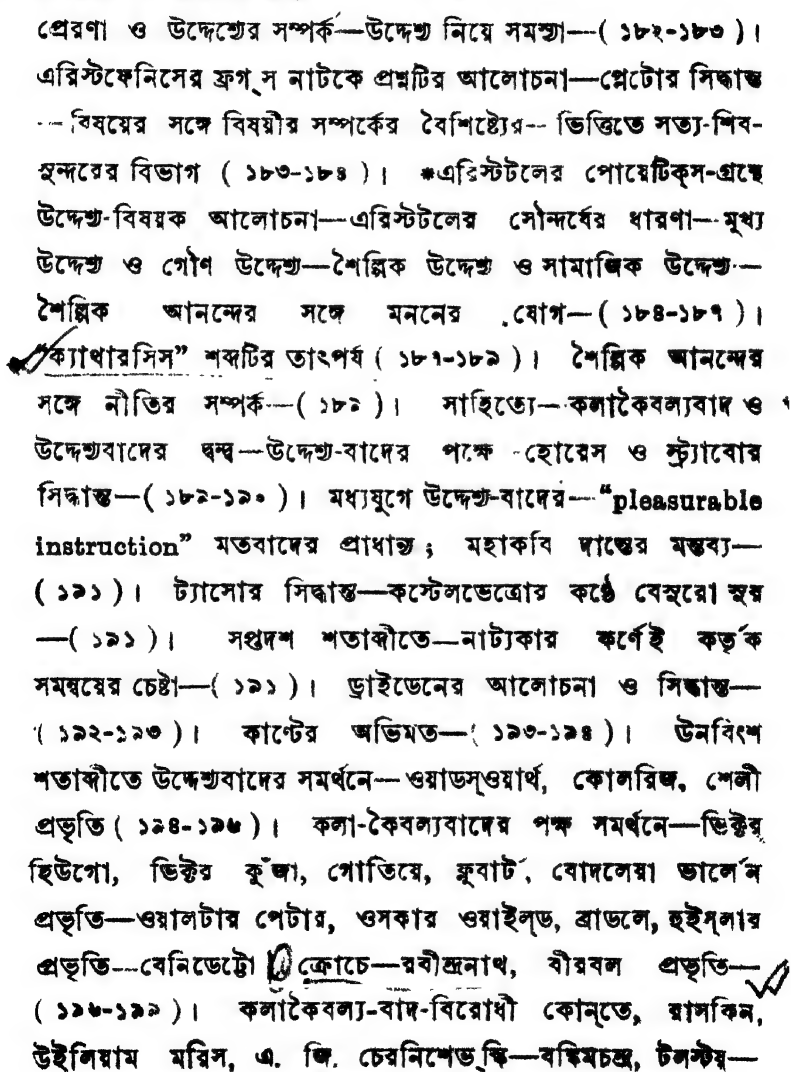 প্রেরণা ও উদ্দেশ্যের সম্পর্ক—উদ্দেশ্য নিয়ে সমস্যা—( ১৮২-১৮৩ )।
এরিস্টফেনিসের ফ্রগ্‌স নাটকে প্রশ্নটির আলোচনা—প্লেটোর সিদ্ধান্ত
—বিষয়ের সঙ্গে বিষয়ীর সম্পর্কের বৈশিষ্ট্যের—ভিত্তিতে সত্য-শিব-
সুন্দরের বিভাগ ( ১৮৩-১৮৪ )। *এরিস্টটলের পোয়েটিক্‌স-গ্রন্থে
উদ্দেশ্য-বিষয়ক আলোচনা—এরিস্টটলের সৌন্দর্যের ধারণা—মুখ্য
উদ্দেশ্য ও গৌণ উদ্দেশ্য—শৈল্পিক উদ্দেশ্য ও সামাজিক উদ্দেশ্য—
শৈল্পিক আনন্দের সঙ্গে মননের যোগ—( ১৮৪-১৮৭ )।
"ক্যাথারসিস" শব্দটির তাৎপর্য ( ১৮৭-১৮৯ )। শৈল্পিক আনন্দের
সঙ্গে নীতির সম্পর্ক—( ১৮৯ )। সাহিত্যে—কলাকৈবল্যবাদ ও
উদ্দেশ্যবাদের দ্বন্দ্ব—উদ্দেশ্য-বাদের পক্ষে -হোরেস ও স্ট্র্যাবোর
সিদ্ধান্ত—( ১৮৯-১৯০ )। মধ্যযুগে উদ্দেশ্য-বাদের—"pleasurable
instruction" মতবাদের প্রাধান্য ; মহাকবি দান্তের মন্তব্য—
( ১৯১ )। ট্যাসোর সিদ্ধান্ত—কস্টেলভেত্রোর কণ্ঠে বেসুরো সুর
—( ১৯১ )। সপ্তদশ শতাব্দীতে—নাট্যকার কর্ণেই কর্তৃক
সমন্বয়ের চেষ্টা—( ১৯১ )। ড্রাইডেনের আলোচনা ও সিদ্ধান্ত—
( ১৯২-১৯৩ )। কাণ্টের অভিমত—( ১৯৩-১৯৪ )। উনবিংশ
শতাব্দীতে উদ্দেশ্যবাদের সমর্থনে—ওয়ার্ডস্‌ওয়ার্থ, কোলরিজ, শেলী
প্রভৃতি ( ১৯৪-১৯৬ )। কলা-কৈবল্যবাদের পক্ষ সমর্থনে—ভিক্টর
হিউগো, ভিক্টর কুঁজা, গোতিয়ে, ফ্লুবার্ট, বোদলেয়া ভার্লেন
প্রভৃতি—ওয়ালটার পেটার, ওসকার ওয়াইল্‌ড, ব্রাডলে, হুইস্‌লার
প্রভৃতি—বেনিডেট্টো ক্রোচে—রবীন্দ্রনাথ, বীরবল প্রভৃতি—
( ১৯৬-১৯৯ )। কলাকৈবল্য-বাদ-বিরোধী কোন্‌তে, রাসকিন,
উইলিয়াম মরিস, এ. জি. চেরনিশেভ্‌স্কি—বঙ্কিমচন্দ্র, টলস্টয়—